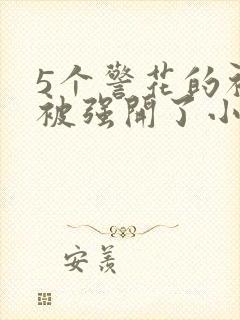 5个警花的
被强開了小
安羨